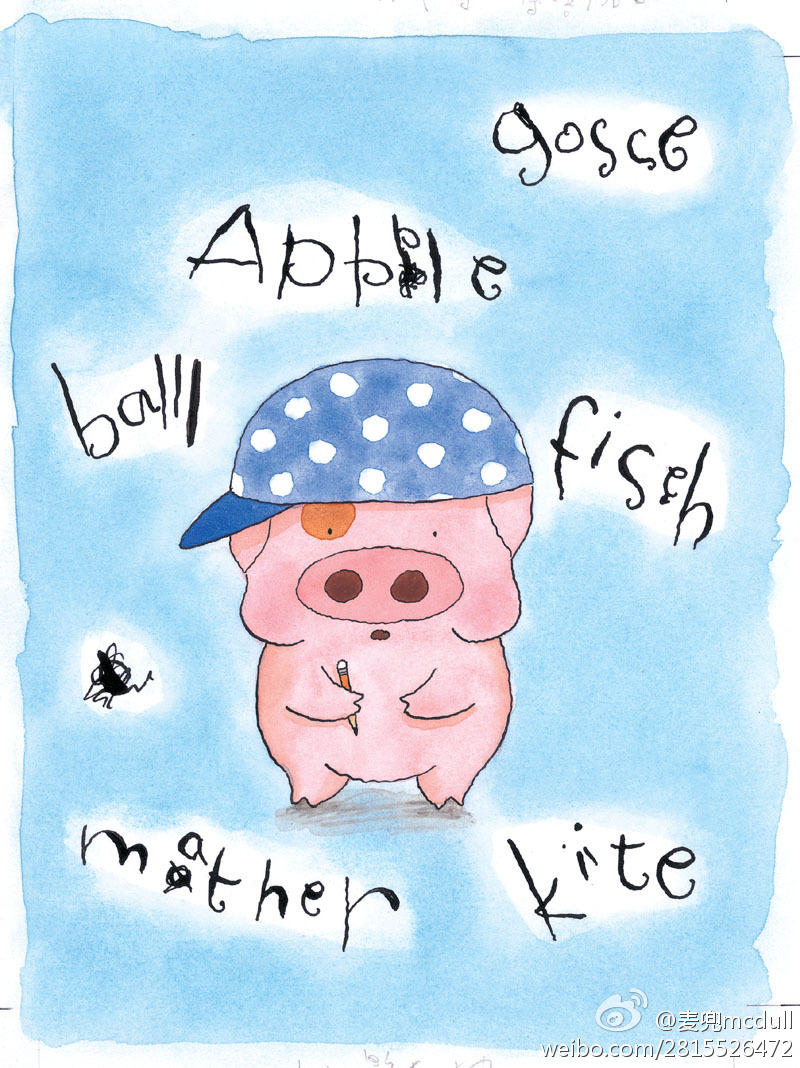 gosce
Apple
balll
fiseh
mather
kiite
@麦兜mcdull
weibo.com/2815526472